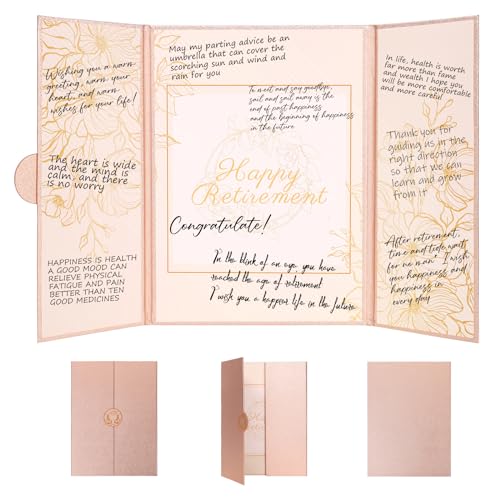 Wishing you a warm
greeting, warm your
heart, and warm
wishes for your life!
The heart is wide
and the mind is
calm, and there
is no worry
HAPPINESS IS HEALTH
A GOOD MOOD CAN
RELIEVE PHYSICAL
FATIGUE AND PAIN
BETTER THAN TEN
GOOD MEDICINES
May my parting advice be an
umbrella that can cover the
scorching sun and wind and
rain for you
To meet and say goodbye,
sail and sail away is the
end of past happiness
and the beginning of happiness
in the future
Happy
Retirement
Congratulate!
In the blink of an eye, you have
reached the age of retirement
I wish you a happier life in the future
In life, health is worth
far more than fame
and wealth I hope you
will be more comfortable
and more careful
Thank you for
guiding us in the
right direction
so that we can
learn and grow
from it
After retirement,
time and tide wait
for no man" I wish
you happiness and
happiness in
every day
Ha
Retirem